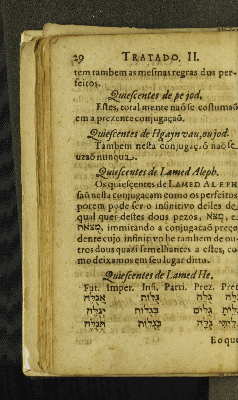 29 TRATADO. II.
tem tambem as mesmas regras dos per-
feitos.
Quiescentes de pe jod.
Estes, total mente naõ se costumaõ
em a prezente conjugaçaõ.
Quiescentes de Hgayn vau, ou jod.
Tambem nesta conjugaçaõ naõ se
uzaõ nunqua.
Quiescentes de Lamed Aleph.
Os quiescentes de LAMED ALEPH
saõ nesta conjugacam como os perfeitos
porem pode ser o infinitivo delles de
qual quer destes dous pezos, מצא, e
מצאת, immitando a conjugacaõ prece
dente cujo infinitivo he tambem de ou-
tros dous quazi semelhantes a estes, co
mo deixamos em seu lugar ditto.
Quiescentes de Lamed He.
Fut. Imper. Infi. Parti. Prez. Pret
אגלה גלה גלות
יגלה בגלות גלים
תגלה כגלות
E o que